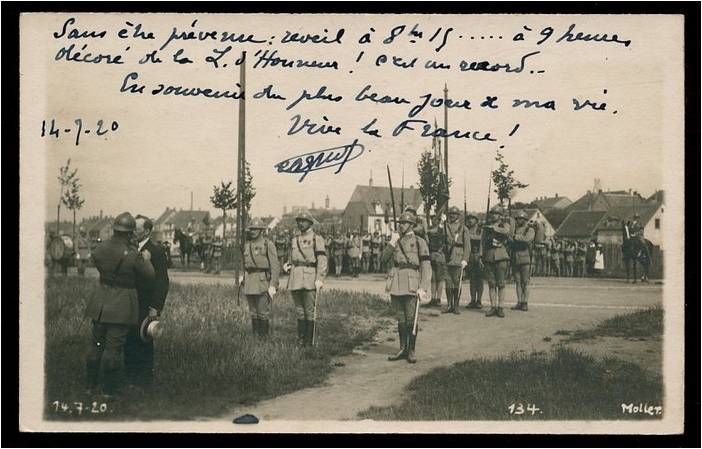 Sans être prévenu : reveil à 8 hrs 15 ..... à 9 heures
décoré de la L. d'Honneur ! c'est un record..
En souvenir du plus beau jour de ma vie.
14-7-20
Vive la France !
14.7-20
134.
Moller.